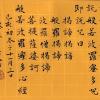 般若波羅蜜多咒
即說咒曰
揭諦揭諦
揭諦
僧揭諦
菩提薩婆訶
般若波羅蜜多心經